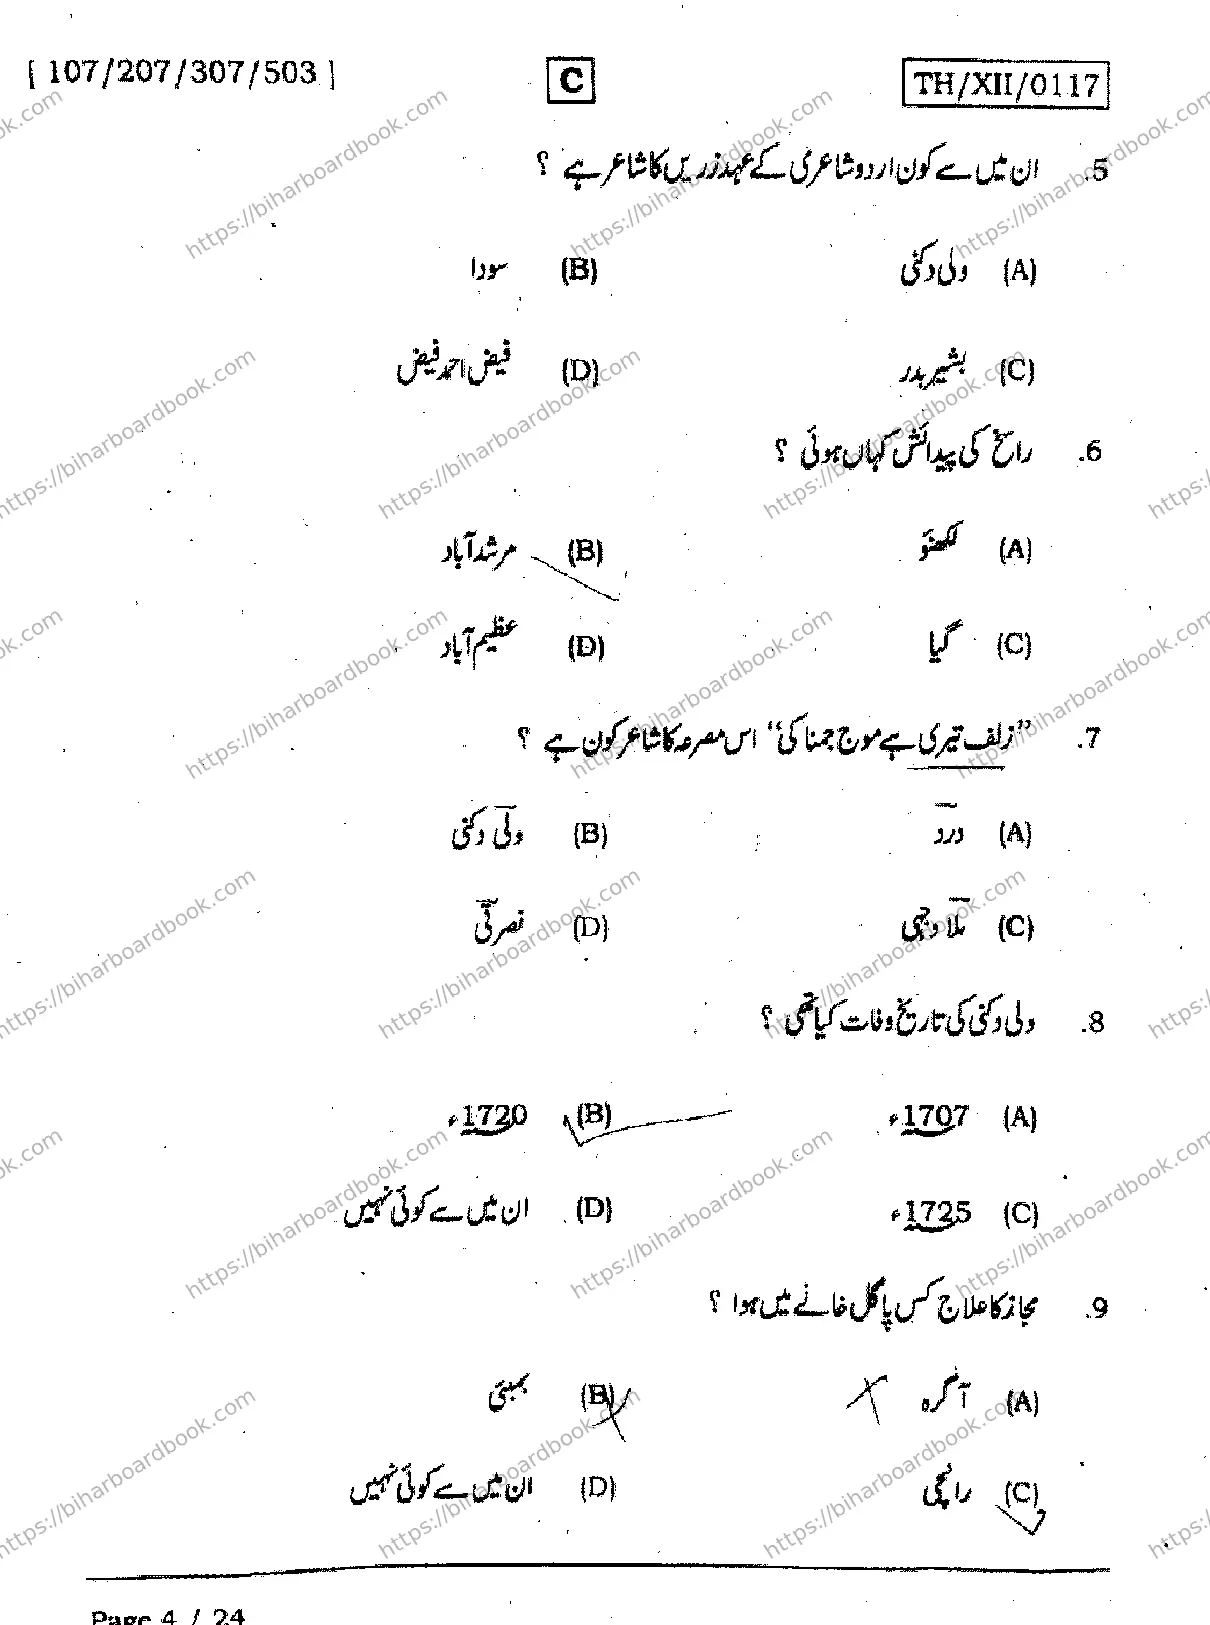 [ 107/207/307/503 ] C TH/XII/0117
5. ان میں سے کون اردو شاعری کے عہد زریں کا شاعر ہے ؟
(A) ولی دکنی (B) سودا
(C) بشیر بدر (D) فیض احمد فیض
6. راسخ کی پیدائش کہاں ہوئی ؟
(A) لکھنؤ (B) مرشدآباد
(C) گیا (D) عظیم آباد
7. ”زلف تیری ہے موج جمنا کی“ اس مصرعہ کا شاعر کون ہے ؟
(A) درد (B) ولی دکنی
(C) ملا وجہی (D) نصرتی
8. ولی دکنی کی تاریخ وفات کیا تھی ؟
(A) 1707ء (B) 1720ء
(C) 1725ء (D) ان میں سے کوئی نہیں
9. مجاز کا علاج کس پاگل خانے میں ہوا ؟
(A) آگرہ (B) بمبئی
(C) رانچی (D) ان میں سے کوئی نہیں
Page 4 / 24
https://biharboardbook.com